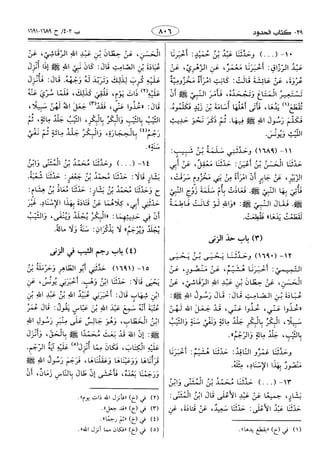 ٢٩- كتاب الحدود
٨٠٦
ب ٢-٤/ ح ١٦٨٩-١٦٩١
١٠- (...) وحَدَّثَنَا عَبْدُ بْنُ حُمَيْدٍ: أَخْبَرَنَا
عَبْدُ الرَّزَّاقِ: أَخْبَرَنَا مَعْمَرٌ، عَنِ الزُّهْرِيِّ، عَنْ
عُرْوَةَ، عَنْ عَائِشَةَ قَالَتْ: كَانَتِ امْرَأَةٌ مَخْزُومِيَّةٌ
تَسْتَعِيرُ الْمَتَاعَ وَتَجْحَدُهُ، فَأَمَرَ النَّبِيُّ ﷺ أَنْ
تُقْطَعَ يَدُهَا، فَأَتَى أَهْلُهَا أُسَامَةَ بْنَ زَيْدٍ فَكَلَّمُوهُ،
فَكَلَّمَ رَسُولَ اللهِ ﷺ فِيهَا. ثُمَّ ذَكَرَ نَحْوَ حَدِيثِ
اللَّيْثِ وَيُونُسَ.
١١- (١٦٨٩) وحَدَّثَنِي سَلَمَةُ بْنُ شَبِيبٍ:
حَدَّثَنَا الْحَسَنُ بْنُ أَعْيَنَ: حَدَّثَنَا مَعْقِلٌ، عَنْ أَبِي
الزُّبَيْرِ، عَنْ جَابِرٍ أَنَّ امْرَأَةً مِنْ بَنِي مَخْزُومٍ سَرَقَتْ،
فَأُتِيَ بِهَا النَّبِيُّ ﷺ، فَعَاذَتْ بِأُمِّ سَلَمَةَ زَوْجِ النَّبِيِّ
ﷺ، فَقَالَ النَّبِيُّ ﷺ: «وَاللهِ لَوْ كَانَتْ فَاطِمَةُ
لَقَطَعْتُ يَدَهَا» فَقُطِعَتْ.
(٣) باب حد الزنى
١٢- (١٦٩٠) وحَدَّثَنَا يَحْيَى بْنُ يَحْيَى
التَّمِيمِيُّ: أَخْبَرَنَا هُشَيْمٌ، عَنْ مَنْصُورٍ، عَنِ
الْحَسَنِ، عَنْ حِطَّانَ بْنِ عَبْدِ اللهِ الرَّقَاشِيِّ، عَنْ
عُبَادَةَ بْنِ الصَّامِتِ قَالَ: قَالَ رَسُولُ اللهِ ﷺ:
«خُذُوا عَنِّي، خُذُوا عَنِّي، قَدْ جَعَلَ اللهُ لَهُنَّ
سَبِيلًا، الْبِكْرُ بِالْبِكْرِ جَلْدُ مِائَةٍ وَنَفْيُ سَنَةٍ وَالثَّيِّبُ
بِالثَّيِّبِ، جَلْدُ مِائَةٍ وَالرَّجْمُ».
وحَدَّثَنَا عَمْرٌو النَّاقِدُ: حَدَّثَنَا هُشَيْمٌ: أَخْبَرَنَا
مَنْصُورٌ بِهَذَا الْإِسْنَادِ، مِثْلَهُ.
١٣- (...) حَدَّثَنَا مُحَمَّدُ بْنُ الْمُثَنَّى وَابْنُ
بَشَّارٍ، جَمِيعًا عَنْ عَبْدِ الْأَعْلَى قَالَ ابْنُ الْمُثَنَّى:
حَدَّثَنَا عَبْدُ الْأَعْلَى: حَدَّثَنَا سَعِيدٌ، عَنْ قَتَادَةَ، عَنِ
(١) في (خ) «بقطع يدها».
الْحَسَنِ، عَنْ حِطَّانَ بْنِ عَبْدِ اللهِ الرَّقَاشِيِّ، عَنْ
عُبَادَةَ بْنِ الصَّامِتِ قَالَ: كَانَ نَبِيُّ اللهِ ﷺ إِذَا أُنْزِلَ
عَلَيْهِ كُرِبَ لِذَلِكَ وَتَرَبَّدَ لَهُ وَجْهُهُ. قَالَ: فَأُنْزِلَ
عَلَيْهِ ذَاتَ يَوْمٍ، فَلُقِيَ كَذَلِكَ، فَلَمَّا سُرِّيَ عَنْهُ
قَالَ: «خُذُوا عَنِّي، فَقَدْ جَعَلَ اللهُ لَهُنَّ سَبِيلًا،
الثَّيِّبُ بِالثَّيِّبِ وَالْبِكْرُ بِالْبِكْرِ، الثَّيِّبُ جَلْدُ مِائَةٍ، ثُمَّ
رَجْمٌ بِالْحِجَارَةِ، وَالْبِكْرُ جَلْدُ مِائَةٍ ثُمَّ نَفْيُ
سَنَةٍ».
١٤- (...) وحَدَّثَنَا مُحَمَّدُ بْنُ الْمُثَنَّى وَابْنُ
بَشَّارٍ قَالَا: حَدَّثَنَا مُحَمَّدُ بْنُ جَعْفَرٍ: حَدَّثَنَا شُعْبَةُ؛
ح وحَدَّثَنَا مُحَمَّدُ بْنُ بَشَّارٍ: حَدَّثَنَا مُعَاذُ بْنُ هِشَامٍ:
حَدَّثَنِي أَبِي، كِلَاهُمَا عَنْ قَتَادَةَ بِهَذَا الْإِسْنَادِ، غَيْرَ
أَنَّ فِي حَدِيثِهِمَا: «الْبِكْرُ يُجْلَدُ وَيُنْفَى، وَالثَّيِّبُ
يُجْلَدُ وَيُرْجَمُ» لَا يَذْكُرَانِ: سَنَةً وَلَا مِائَةً.
(٤) باب رجم الثيب في الزنى
١٥- (١٦٩١) حَدَّثَنِي أَبُو الطَّاهِرِ وَحَرْمَلَةُ بْنُ
يَحْيَى قَالَا: حَدَّثَنَا ابْنُ وَهْبٍ: أَخْبَرَنِي يُونُسُ، عَنِ
ابْنِ شِهَابٍ قَالَ: أَخْبَرَنِي عُبَيْدُ اللهِ بْنُ عَبْدِ اللهِ بْنِ
عُتْبَةَ أَنَّهُ سَمِعَ عَبْدَ اللهِ بْنَ عَبَّاسٍ يَقُولُ: قَالَ عُمَرُ
ابْنُ الْخَطَّابِ، وَهُوَ جَالِسٌ عَلَى مِنْبَرِ رَسُولِ اللهِ
ﷺ: إِنَّ اللهَ قَدْ بَعَثَ مُحَمَّدًا ﷺ بِالْحَقِّ، وَأَنْزَلَ
عَلَيْهِ الْكِتَابَ، فَكَانَ مِمَّا أُنْزِلَ عَلَيْهِ آيَةُ الرَّجْمِ،
قَرَأْنَاهَا وَوَعَيْنَاهَا وَعَقَلْنَاهَا، فَرَجَمَ رَسُولُ اللهِ ﷺ
وَرَجَمْنَا بَعْدَهُ، فَأَخْشَى إِنْ طَالَ بِالنَّاسِ زَمَانٌ، أَنْ
(٢) في (خ) «فأنزل الله ذات يوم».
(٣) في (خ) «قد جعل».
(٤) في (خ) «ثم رجمًا».
(٥) في (خ) «فكان مما أنزل الله».